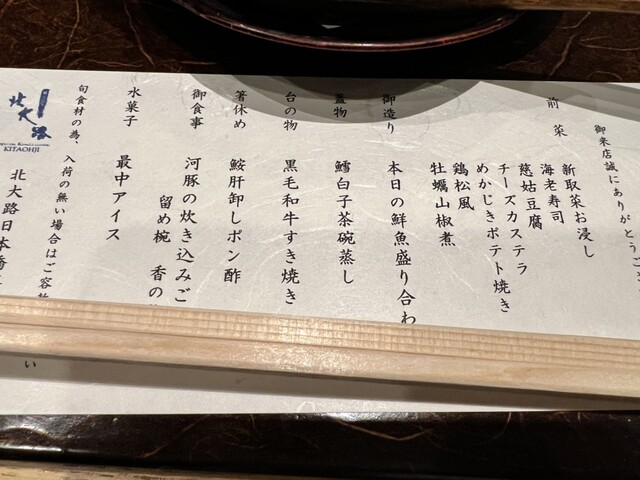 御来店誠にありがとうご
前菜
新取菜お浸し
海老寿司
慈姑豆腐
チーズカステラ
めかじきポテト焼き
鶏松風
牡蠣山椒煮
御造り
本日の鮮魚盛り合わ
蓋物
鱈白子茶碗蒸し
台の物
黒毛和牛すき焼き
箸休め
鮟肝卸しポン酢
御食事
河豚の炊き込みご
留め椀 香の
水菓子
最中アイス
旬食材の為、入荷の無い場合はご容
い
北大路
KITAOHJI
北大路日本橋